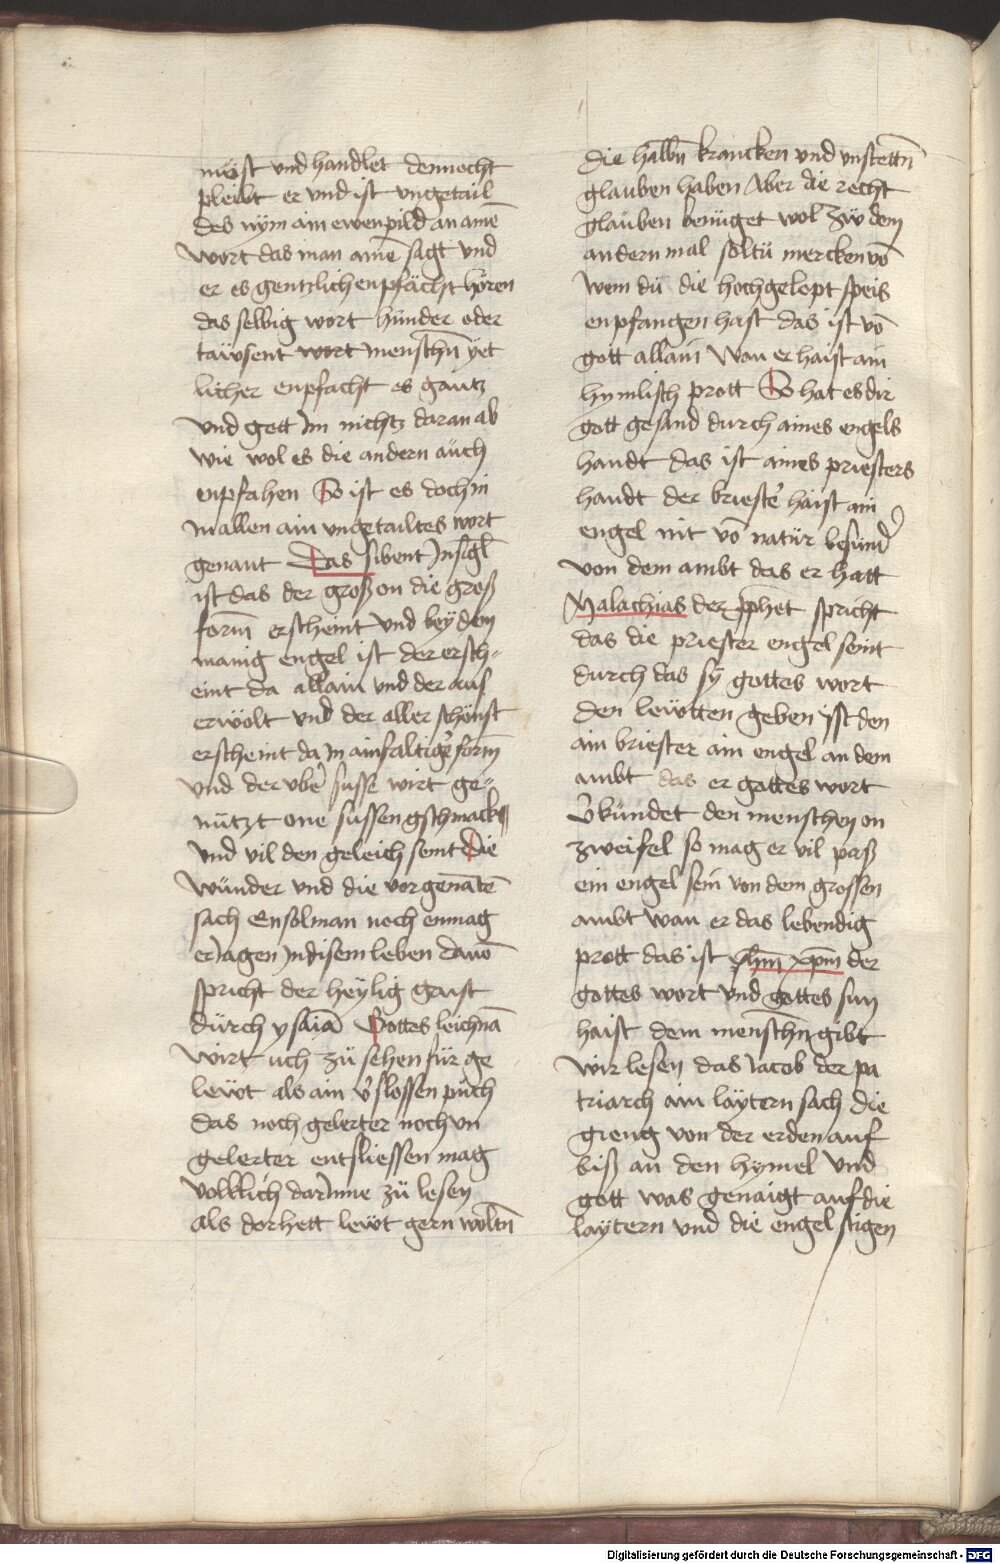 nüst vnd handlet dennocht
pleibt er vnd ist vngetail
des nÿm ain ewenpild an amē
wort das man amē sagt vnd
er es gentzlich enpfächt hören
das selbig wort hunder oder
taüsent wort menschn̄ yet
licher enpfacht es gantz
vnd gett Im nichtz daran ab
wie wol es die andern aüch
enpfahen So ist es doch in
In allen ain vngetailtes wort
genant Das sibent Insigl̄
ist das der groß on die groß
form̄ erscheint vnd beÿ dem
manig engel ist der ersch-
eint da allain vnd der auß
erwölt vnd der aller schönst
erscheint da In ainfaltig̾ form̄
vnd der vbe̾ süsse wirt ge-
nützt one süssen gschmack
vnd vil den geleich seint Die
wünder vnd die vor genātē
sach En sol man noch enmag
erIagen In disem leben dauō
spricht der heÿlig gaist
dürch ysaiā Gottes leichnā
wirt üch zü sehen für ge
lewt als ain v̾slossen püch
das noch gelerter noch vn
gelerter entsliessen mag
volklich darInne zü lesen
als dorhett lewt gern woltn̄
die halbn̄ krancken vnd vnstettn̄
glauben haben Aber die recht
glauben benüget wol Zü dem
andern mal soltü mercken vō
wem dü die hochgelopt speis
enpfangen hast das ist vō
gott allain Wan er haist ain
hymlisch prott So hat es dir
gott gesand durch aines engels
handt das ist aines priesters
handt der brieste̾ haist ain
engel nit vō natür besund̾
von dem ambt das er hatt
Malachias der p̄phet spricht
das die priester engel seint
durch das sÿ gottes wort
den lewtten geben ist den
ain briester ain engel an dem
ambt das er gottes wort
v̾kündet den menschen on
zweifel so mag er vil paß
ein engel sein von dem grossen
ambt wan er das lebendig
prott das ist ihm̄ xpm̄ der
gottes wort vnd gottes sun
haist dem menschn̄ gibt
wir lesen das Iacob der pa
triarch ain laÿtern sach die
gieng von der erden auf
biß an den hymel vnd
gott was genaigt auf die
laÿtern vnd die engel stigen
Digitalisierung gefördert durch die Deutsche Forschungsgemeinschaft - DFG